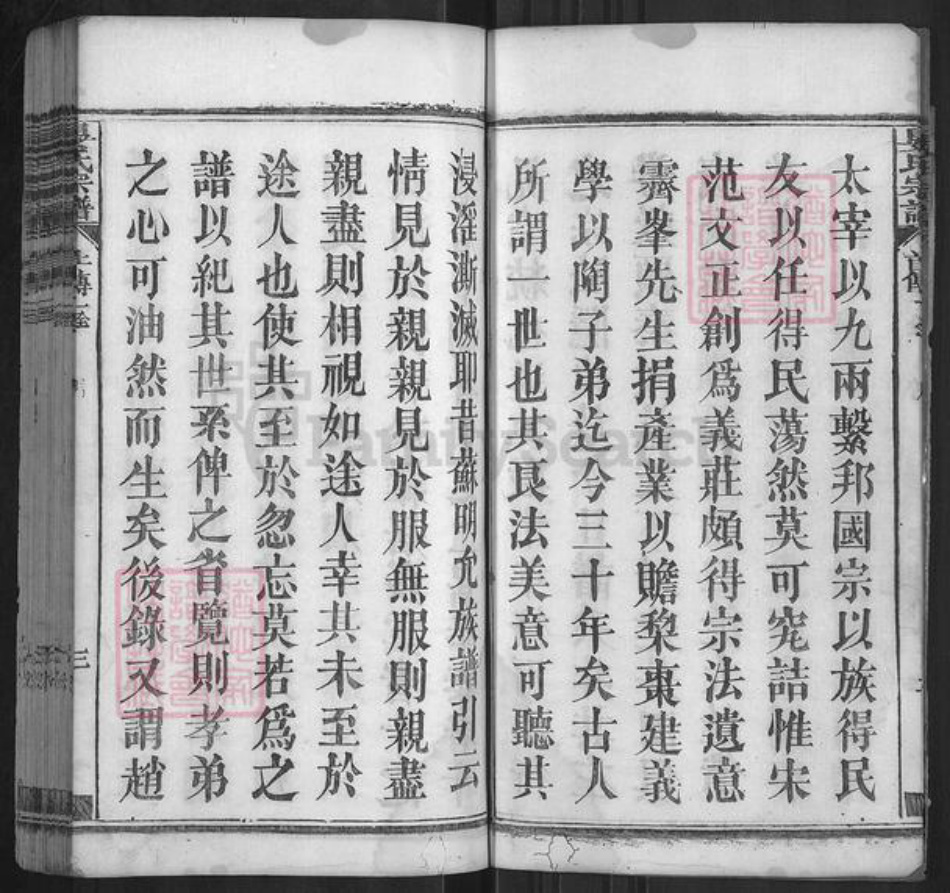 太宰以九兩繫邦國宗以族得民
友以任得民蕩然莫可究詰惟宋
范文正創爲義莊頗得宗法遺意
霽峯先生捐產業以贍棃棗建義
學以陶子弟迄今三十年矣古人
所謂一世也其良法美意可聽其
浸淫澌滅耶昔蘇明允族譜引云
情見於親親見於服無服則親盡
親盡則相視如途人幸其未至於
途人也使其至於忽忘莫若爲之
譜以紀其世系俾之省覽則孝弟
之心可油然而生矣後錄又謂趙
氏宗譜
三
FamilySearch